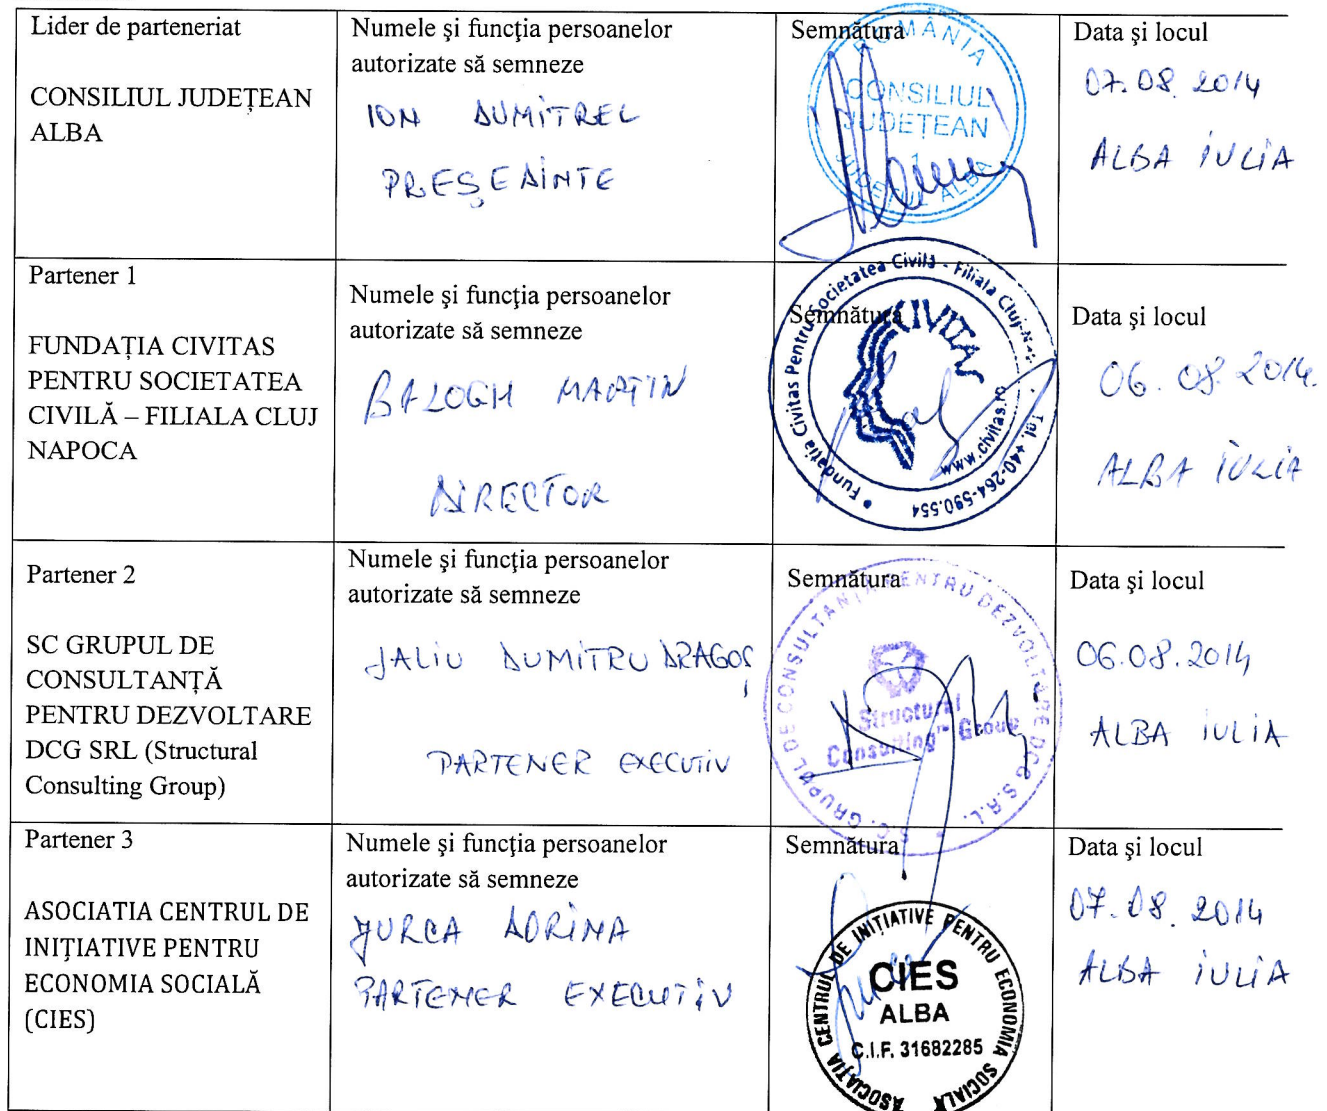 Lider de parteneriat
CONSILIUL JUDEȚEAN
ALBA
Numele şi funcţia persoanelor
autorizate să semneze
ION DUMITREL
PREȘEDINTE
Semnătura
ROMÂNIA
CONSILIUL
JUDEȚEAN
1
JUDEȚUL ALBA
Data şi locul
07.08.2014
ALBA IULIA
Partener 1
FUNDAȚIA CIVITAS
PENTRU SOCIETATEA
CIVILĂ – FILIALA CLUJ
NAPOCA
Numele şi funcţia persoanelor
autorizate să semneze
BALOGH MARTIN
DIRECTOR
Semnătura
Fundatia Civitas Pentru Societatea Civilă - Filiala Cluj-N
Tel. +40-264-590.554
CIVITAS
www.civitas.ro
Data şi locul
06.08.2014.
ALBA IULIA
Partener 2
SC GRUPUL DE
CONSULTANȚĂ
PENTRU DEZVOLTARE
DCG SRL (Structural
Consulting Group)
Numele şi funcţia persoanelor
autorizate să semneze
JALIU DUMITRU DRAGOȘ
PARTENER EXECUTIV
Semnătura
S.C. GRUPUL DE CONSULTANȚA PENTRU DEZVOLTARE DCG S.R.L.
Structural
Consulting Group
Data şi locul
06.08.2014
ALBA IULIA
Partener 3
ASOCIATIA CENTRUL DE
INIȚIATIVE PENTRU
ECONOMIA SOCIALĂ
(CIES)
Numele şi funcţia persoanelor
autorizate să semneze
JURCA DORINA
PARTENER EXECUTIV
Semnătura
ASOCIAȚIA CENTRUL DE INIȚIATIVE PENTRU ECONOMIA SOCIALĂ
CIES
ALBA
C.I.F. 31682285
Data şi locul
07.08.2014
ALBA IULIA